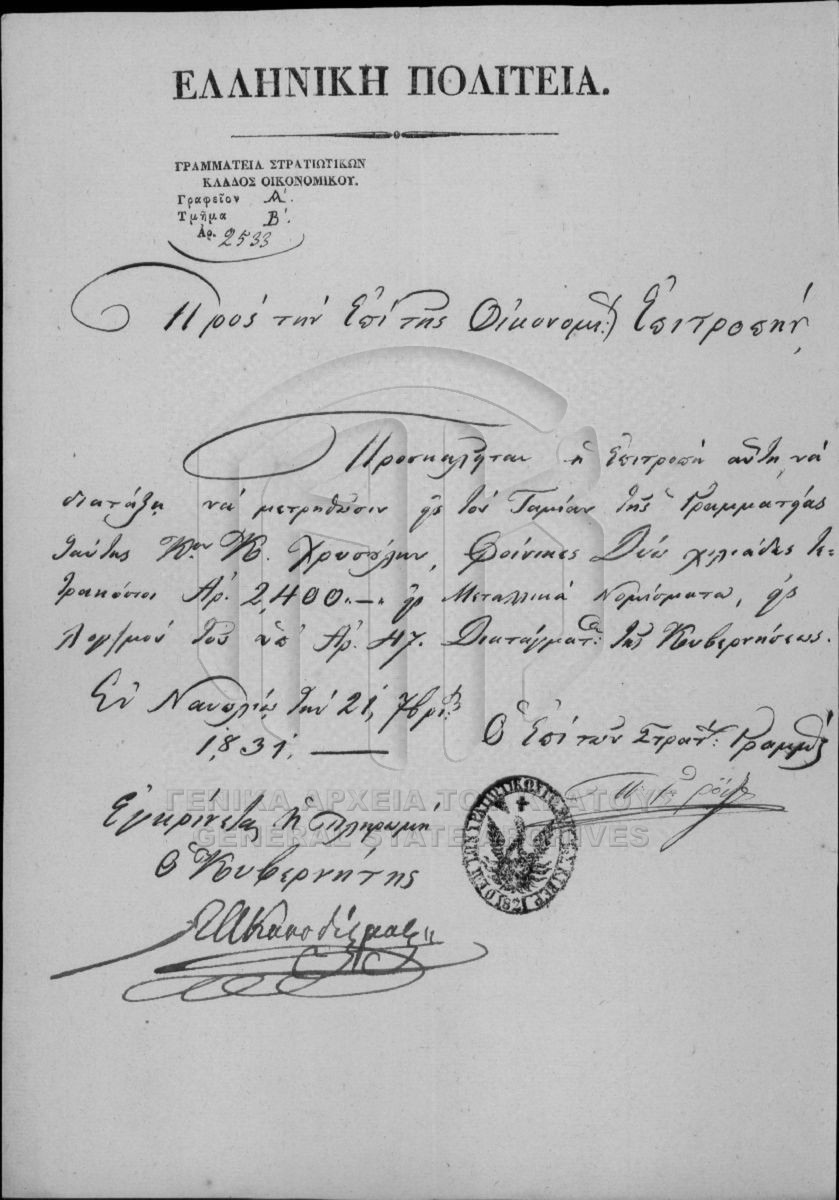 ΕΛΛΗΝΙΚΗ ΠΟΛΙΤΕΙΑ.
ΓΡΑΜΜΑΤΕΙΑ ΣΤΡΑΤΙΩΤΙΚΩΝ
ΚΛΑΔΟΣ ΟΙΚΟΝΟΜΙΚΟΥ.
Γραφεῖον Α΄.
Τμῆμα Β΄.
Ἀρ. 2533
Πρὸς τὴν Ἐπὶ τῆς Οἰκονομ: Ἐπιτροπήν,
Προσκαλεῖται ἡ Ἐπιτροπὴ αὕτη νὰ
διατάξῃ νὰ μετρηθῶσιν εἰς τὸν Ταμίαν τῆς Γραμματείας
ταύτης Κον Κ. Φοίνικες Δύω χιλιάδες τε-
τρακόσιοι Ἀρ. 2,400 εἰς Μεταλλικὰ Νομίσματα, εἰς
λογ/σμὸν τοῦ ὑπ' Ἀρ. 47. Διατάγματ: τῆς Κυβερνήσεως.
Ἐν Ναυπλίῳ τὴν 21, 7βρί:
1831,
Ὁ Ἐπὶ τῶν Στρατ: Γραμμ
Ἐγκρίνεται ἡ πληρωμὴ
Ὁ Κυβερνήτης
ΙΑ Καποδίστριας
1821
ΓΕΝΙΚΑ ΑΡΧΕΙΑ ΤΟΥ ΚΡΑΤΟΥΣ
GENERAL STATE ARCHIVES